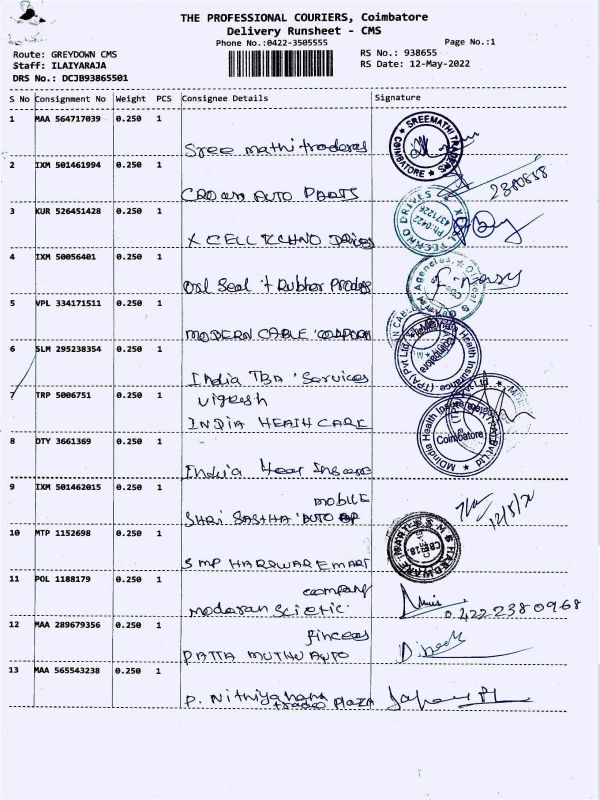 THE PROFESSIONAL COURIERS, Coimbatore
Delivery Runsheet - CMS
Phone No.:0422-3505555
Page No.:1
Route: GREYDOWN CMS
RS No.: 938655
Staff: ILAIYARAJA
RS Date: 12-May-2022
DRS No.: DCJB93865501
S No Consignment No Weight PCS Consignee Details Signature
1 MAA 564717039 0.250 1
Sree mathi traderes
SREEMATHI TRADERS COIMBATORE
2 IXM 501461994 0.250 1
CROWN AUTO PARTS
2380658
3 KUR 526451428 0.250 1
X CELL TECHNO Drives
4 IXM 50056401 0.250 1
Oil Seal + Rubber
5 VPL 334171511 0.250 1
MODERN CABLE
6 SLM 295238354 0.250 1
India TBA Services
7 TRP 5006751 0.250 1
Vignesh
INDIA HEATH CARE
MDIndia Health Insurance (TPA) Pvt Ltd
Coimbatore
8 DTY 3661369 0.250 1
India
9 IXM 501462015 0.250 1
mobile
SHRI SASTHA AUTO
10 MTP 1152698 0.250 1
SMP HARDWARE MART
11 POL 1188179 0.250 1
company
modaran Scietic.
0422 2380968
12 MAA 289679356 0.250 1
PATTA MUTHU AUTO
Dinesh
13 MAA 565543238 0.250 1
P. Nithiyahana
trade Plaza